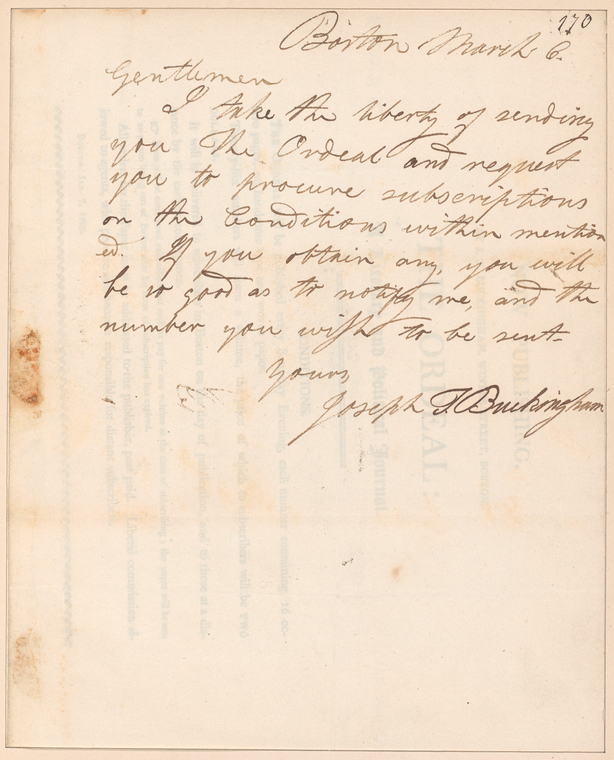 170
Boston March 6.
Gentlemen
I take the liberty of sending
you The Ordeal and request
you to procure subscriptions
on the Conditions within mention
ed. If you obtain any, you will
be so good as to notify me, and the
number you wish to be sent.
Yours
Joseph T. Buckingham